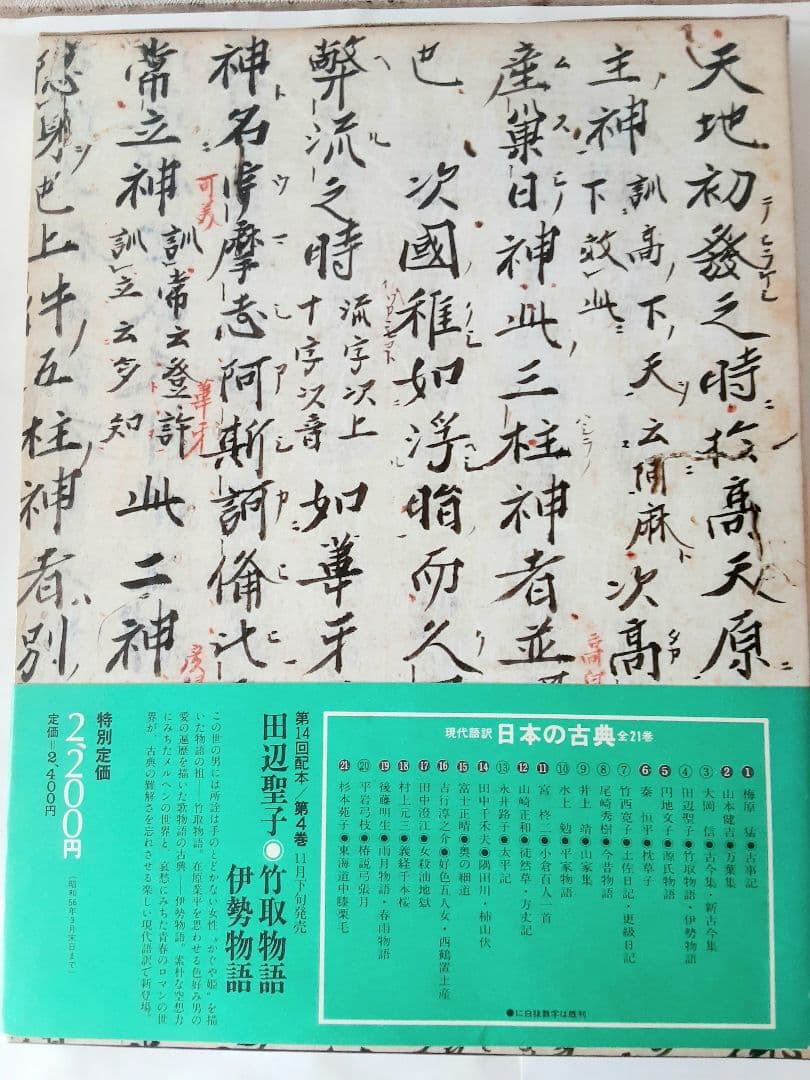 天地初發之時於高天原
主神 訓高下天云阿麻下效此 次高
産巣日神此三柱神者並
也 次國稚如浮脂而久
弊流之時 流字以上十字以音 如葦牙
神名宇摩志阿斯訶備比
可美
葦牙
常立神 訓常云登許訓立云多知 此二神
隠身也上件五柱神者別
現代語訳 日本の古典 全21巻
❶梅原 猛●古事記
❷山本健吉●万葉集
③大岡 信●古今集・新古今集
④田辺聖子●竹取物語・伊勢物語
❺円地文子●源氏物語
❻秦 恒平●枕草子
⑦竹西寛子●土佐日記・更級日記
⑧尾崎秀樹●今昔物語
⑨井上 靖●山家集
⑩水上 勉●平家物語
⓫宮 柊二●小倉百人一首
⓬山崎正和●徒然草・方丈記
⑬永井路子●太平記
⓮田中千禾夫●隅田川・柿山伏
⓯富士正晴●奥の細道
⓰吉行淳之介●好色五人女・西鶴置土産
⓱田中澄江●女殺油地獄
⓲村上元三●義経千本桜
⓳後藤明生●雨月物語・春雨物語
⑳平岩弓枝●椿説弓張月
㉑杉本苑子●東海道中膝栗毛
●に白抜数字は既刊
第14回配本/第4巻 11月下旬発売
田辺聖子◉竹取物語
伊勢物語
この世の男には所詮は手のとどかない女性〝かぐや姫〟を描
いた物語の祖──竹取物語。在原業平を思わせる色好み男の
愛の遍歴を描いた歌物語の古典──伊勢物語。素朴な空想力
にみちたメルヘンの世界と、哀愁にみちた青春のロマンの世
界が、古典の難解さを忘れさせる楽しい現代語訳で新登場。
特別定価
2,200円
(昭和56年3月末日まで)
定価=2,400円